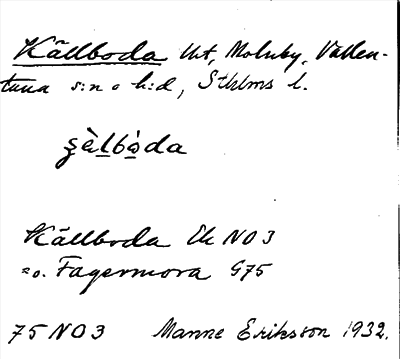 Källboda tht, Molnby, Vallen-
tuna s:n o h:d, Sthlms l.
ʂὲl̲bὼda
Källboda Ek NO 3
=o. Fagermora G75
75 NO 3 Manne Eriksson 1932.